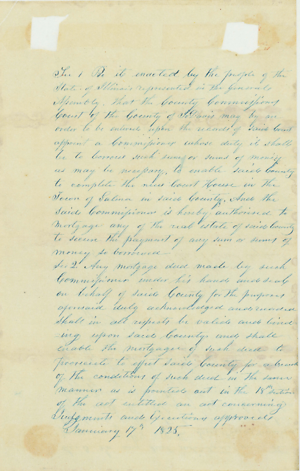 Sec 1 Be it enacted by the people of the
State of Illinois represented in the general
Assembly, That the County Commissioners
Court of the County of may by an
order to be entered upon the records of said Court
appoint a Commissioner whose duty it shall
be to borrow such sum or sums of money
as may be necessary to enable said County
to complete the new Court House in the
Town of in said County, And the
said Commissioner is hereby authorized to
Mortgage any of the real estate of said County
to secure the payment of any sum or sums of
money so borrowed
Sec 2 Any mortgage deed made by such
Commissioner under his hand and seal
on behalf of said County for the purposes
aforesaid duly acknowledged and recorded
shall in all respects be valid and bind
ing upon said County and shall
enable the mortgagee of such deed to
against said County for
of the conditions of such deed in the same
manner as is pointed out in the 18th section
of the act entitled an act concerning
Judgments and Executions approved
January 17th 1825.